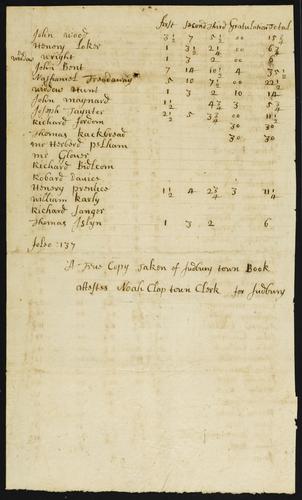 first Second Third Gratulation Total
John Wood 3½ 7 5½ 00 15¾
Henery Loker 1 3½ 2¼ 00 6¾
widow Wright 1 3 2 00 6
John Bent 7 14 10½ 4 35½
Nathaniel Treadaway 5 10 7 00 22
widow Hunt 1 3 2 10 14
John maynard
Joseph Taynter
Richard fordom 2½ 5
Thomas hackbread 30 30
mr Herberd pelham
mr Glover
Richard Bidlcom
Robard Davies
Henery prentice 1½ 4 2¾ 3 11¼
william Karly
Richard Sanger
Thomas Islyn 1 3 2 6
foleo : 137
A True Copy Taken of Sudbury town Book
attestes Noah Clap town Clerk for Sudbury